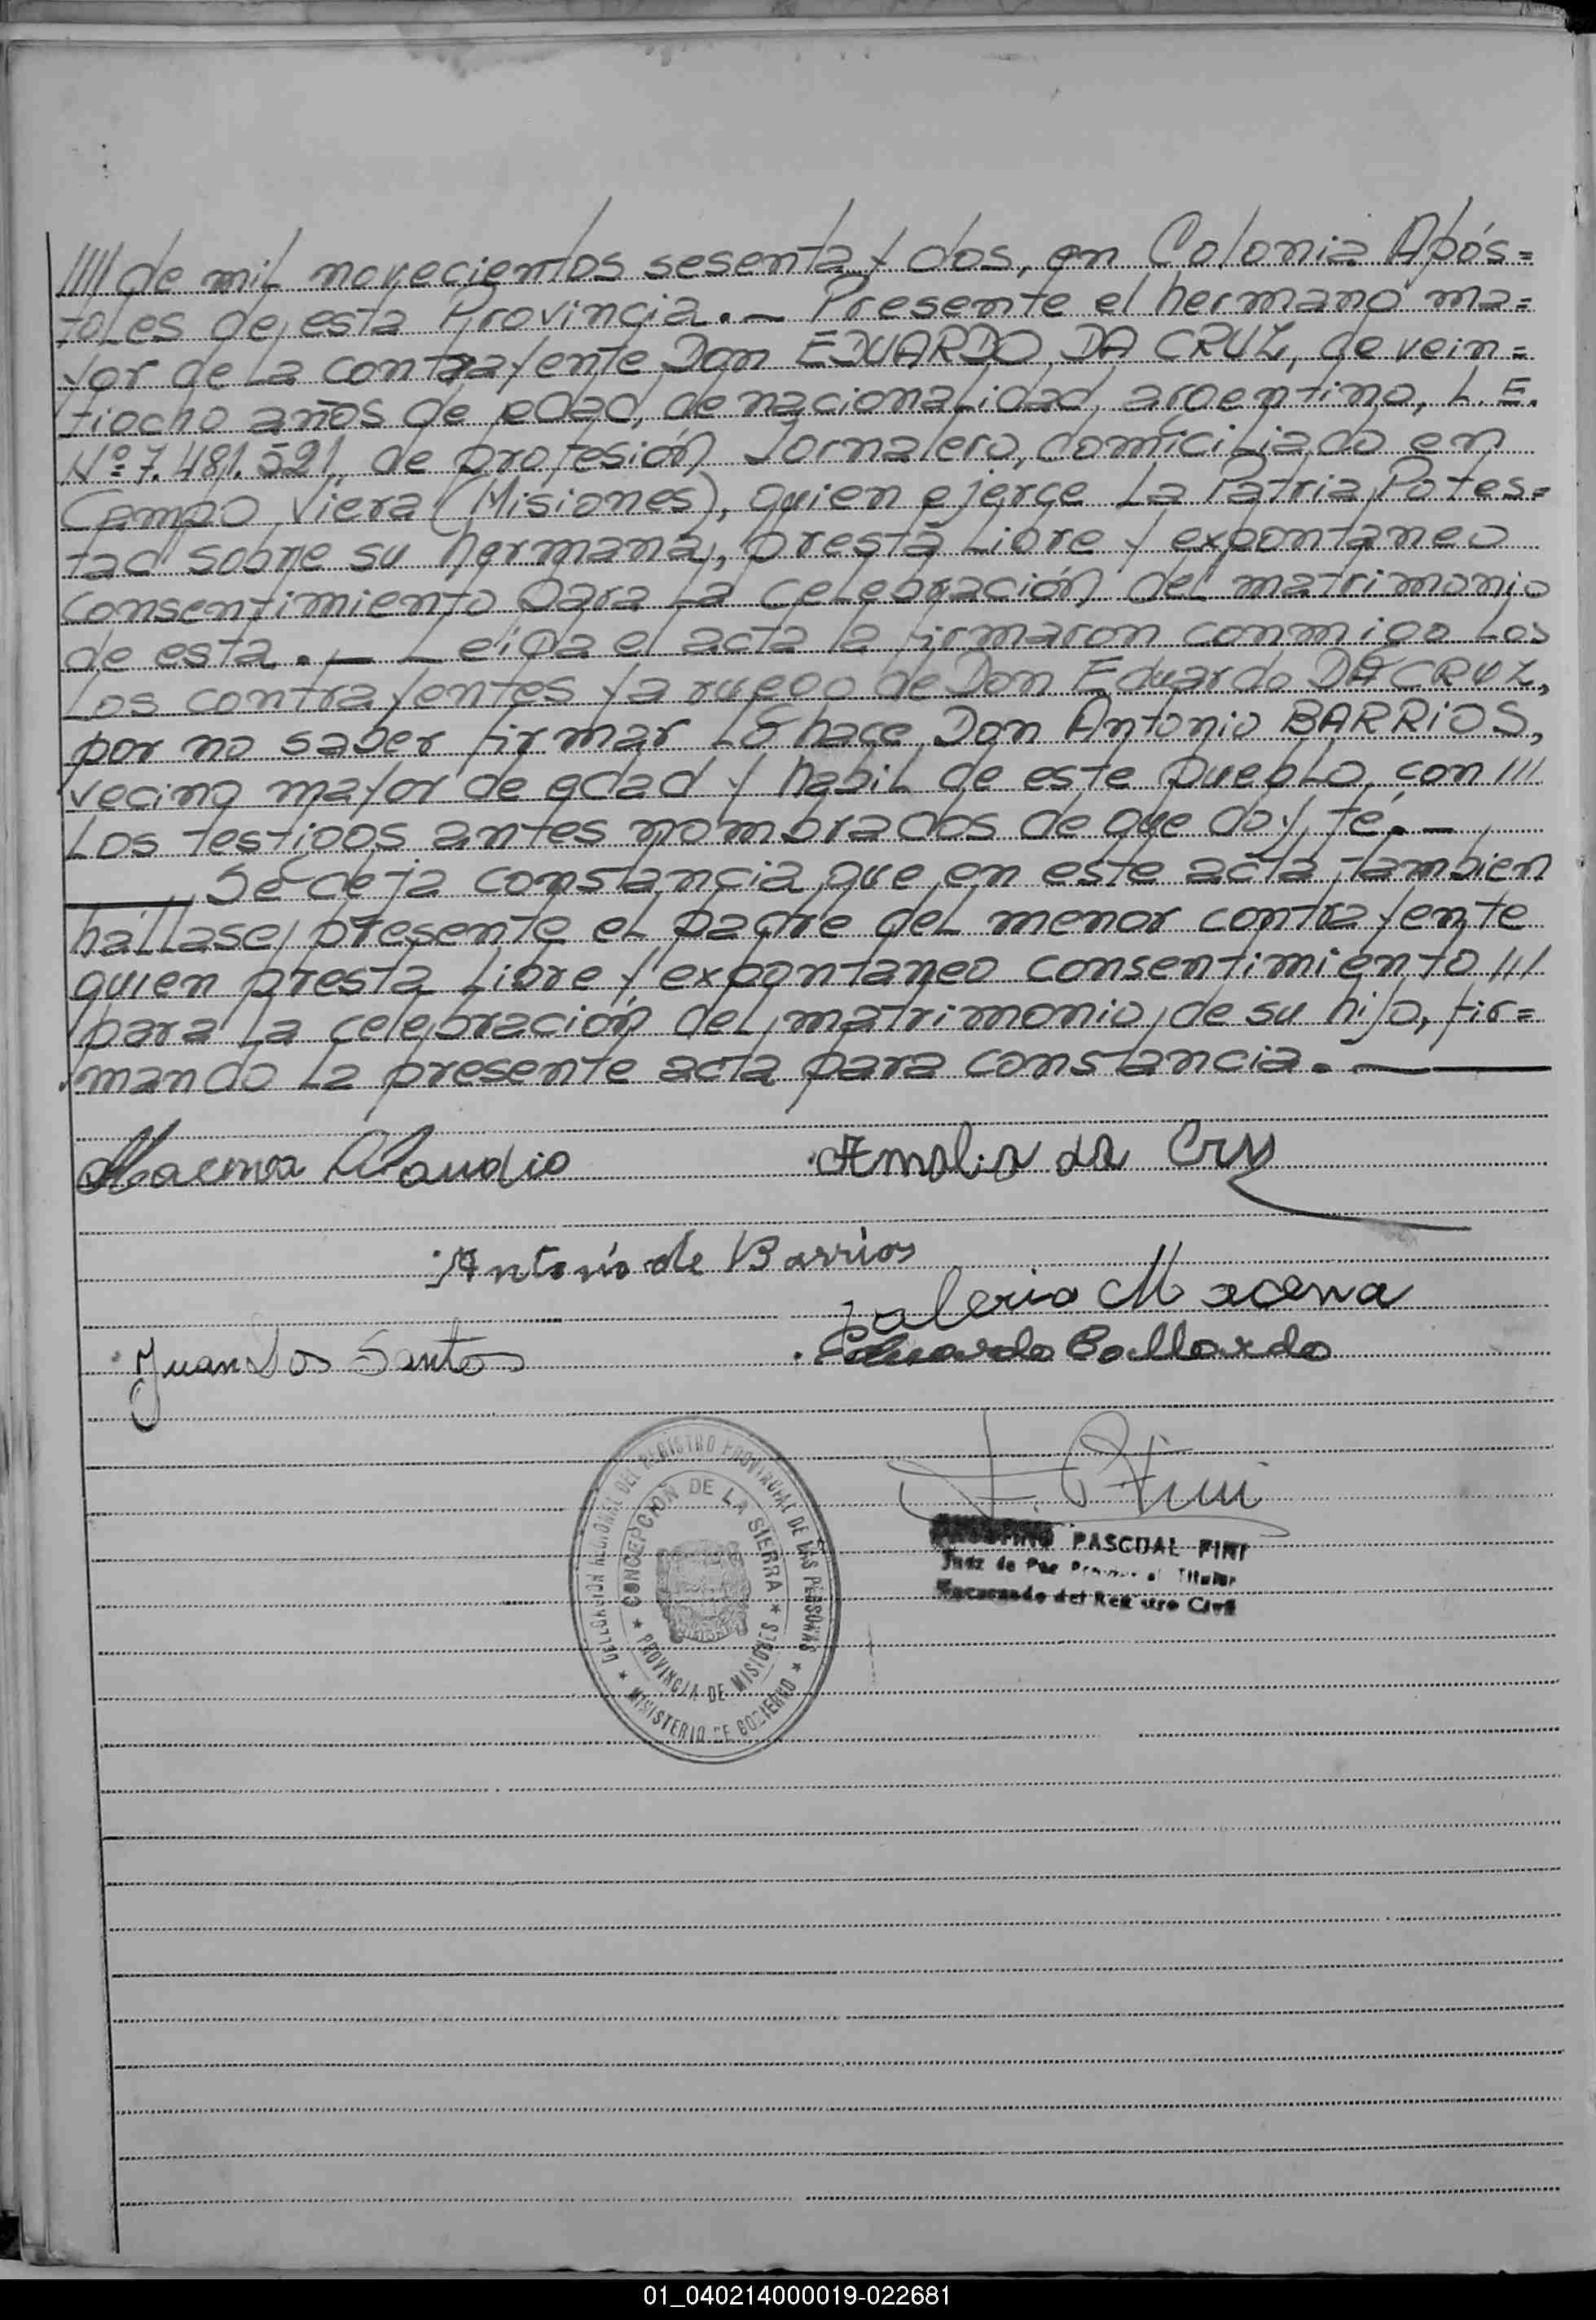 //// de mil novecientos sesenta y dos, en Colonia Após=
toles de esta Provincia.— Presente el hermano ma=
yor de la contrayente Don EDUARDO DA CRUZ, de vein=
tiocho años de edad, de nacionalidad argentino, L. E.
Nº 7.481.521, de profesión Jornalero, domiciliado en
Campo Viera (Misiones), quien ejerce la Patria Potes=
tad sobre su hermana, presta libre y expontaneo
consentimiento para la celebración del matrimonio
de esta.— Leída el acta la firmaron conmigo los
los contrayentes y a ruego de Don Eduardo DA CRUZ,
por no saber firmar lo hace Don Antonio BARRIOS,
vecino mayor de edad y habil de este pueblo, con ///
los testigos antes nombrados de que doy fé.—
Se deja constancia que en este acta tambien
hállase presente el padre del menor contrayente
quien presta libre y expontaneo consentimiento ///
para la celebración del matrimonio de su hijo, fir=
mando la presente acta para constancia.—
Macena Claudio Amalia da Cruz
Antonio de Barrios
Valerio Macena
Juan Dos Santos Eduardo Gallardo
F. P. Fini
PASCUAL FINI
Juez de Paz Titular
Encargado del Registro Civil
DELEGACION REGIONAL DEL REGISTRO PROVINCIAL DE LAS PERSONAS
CONCEPCION DE LA SIERRA
PROVINCIA DE MISIONES
MINISTERIO DE GOBIERNO
01_040214000019-022681